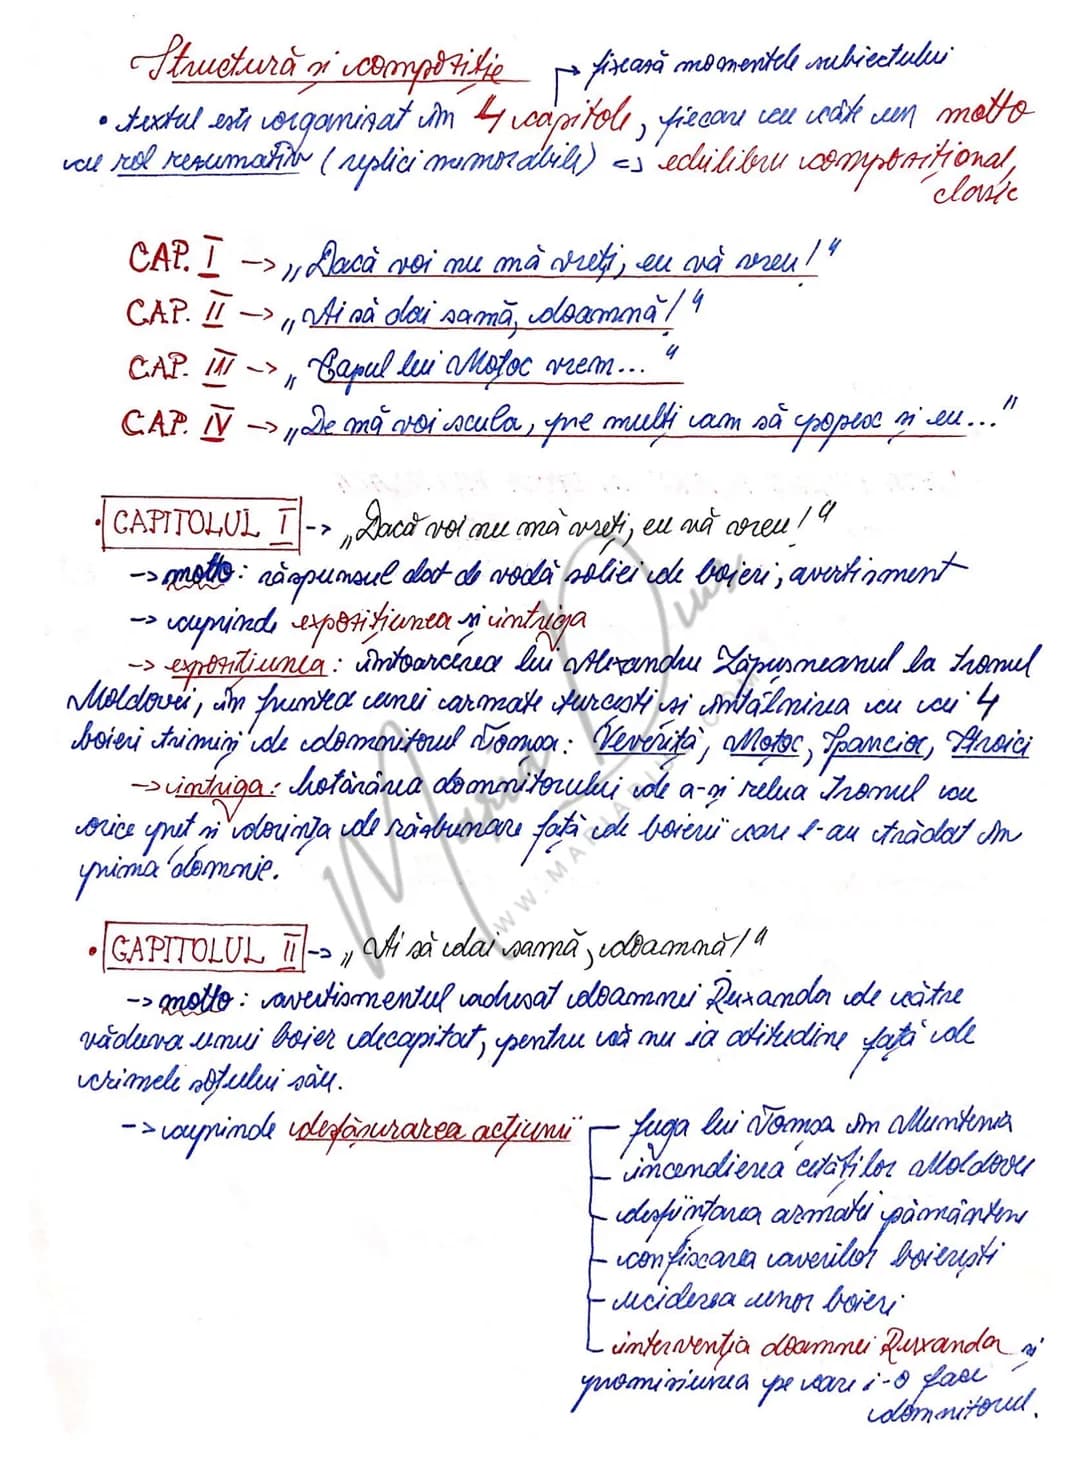 Structură și compoziție → fixează momentele subiectului
• textul este organizat în 4 capitole, fiecare cu câte un motto
cu rol rezumativ (replici memorabile) => echilibru compozițional,
clasic
CAP. I -> „Dacă voi nu mă vreți, eu vă vreu!"
CAP. II -> „Ai să dai samă, doamnă!"
CAP. III -> „Capul lui Moțoc vrem..."
CAP. IV -> „De mă voi scula, pre mulți am să popesc și eu..."
• CAPITOLUL I -> „Dacă voi nu mă vreți, eu vă vreu!"
-> motto: răspunsul dat de vodă soliei de boieri; avertisment
-> cuprinde expozițiunea și intriga
-> expozițiunea: întoarcerea lui Alexandru Lăpușneanul la tronul
Moldovei, în fruntea unei armate turcești și întâlnirea cu cei 4
boieri trimiși de domnitorul Tomșa: Veveriță, Moțoc, Spancioc, Stroici
-> intriga: hotărârea domnitorului de a-și relua tronul cu
orice preț și dorința de răzbunare față de boierii care l-au trădat în
prima domnie.
• CAPITOLUL II -> „Ai să dai samă, doamnă!"
-> motto: avertismentul adresat doamnei Ruxanda de către
văduva unui boier decapitat, pentru că nu ia atitudine față de
crimele soțului său.
-> cuprinde desfășurarea acțiunii
fuga lui Tomșa în Muntenia
incendierea cetăților Moldovei
desființarea armatei pământene
confiscarea averilor boierești
uciderea unor boieri
intervenția doamnei Ruxanda și
promisiunea pe care i-o face
domnitorul.
Maria Duis
WWW.MARIADUIS.COM